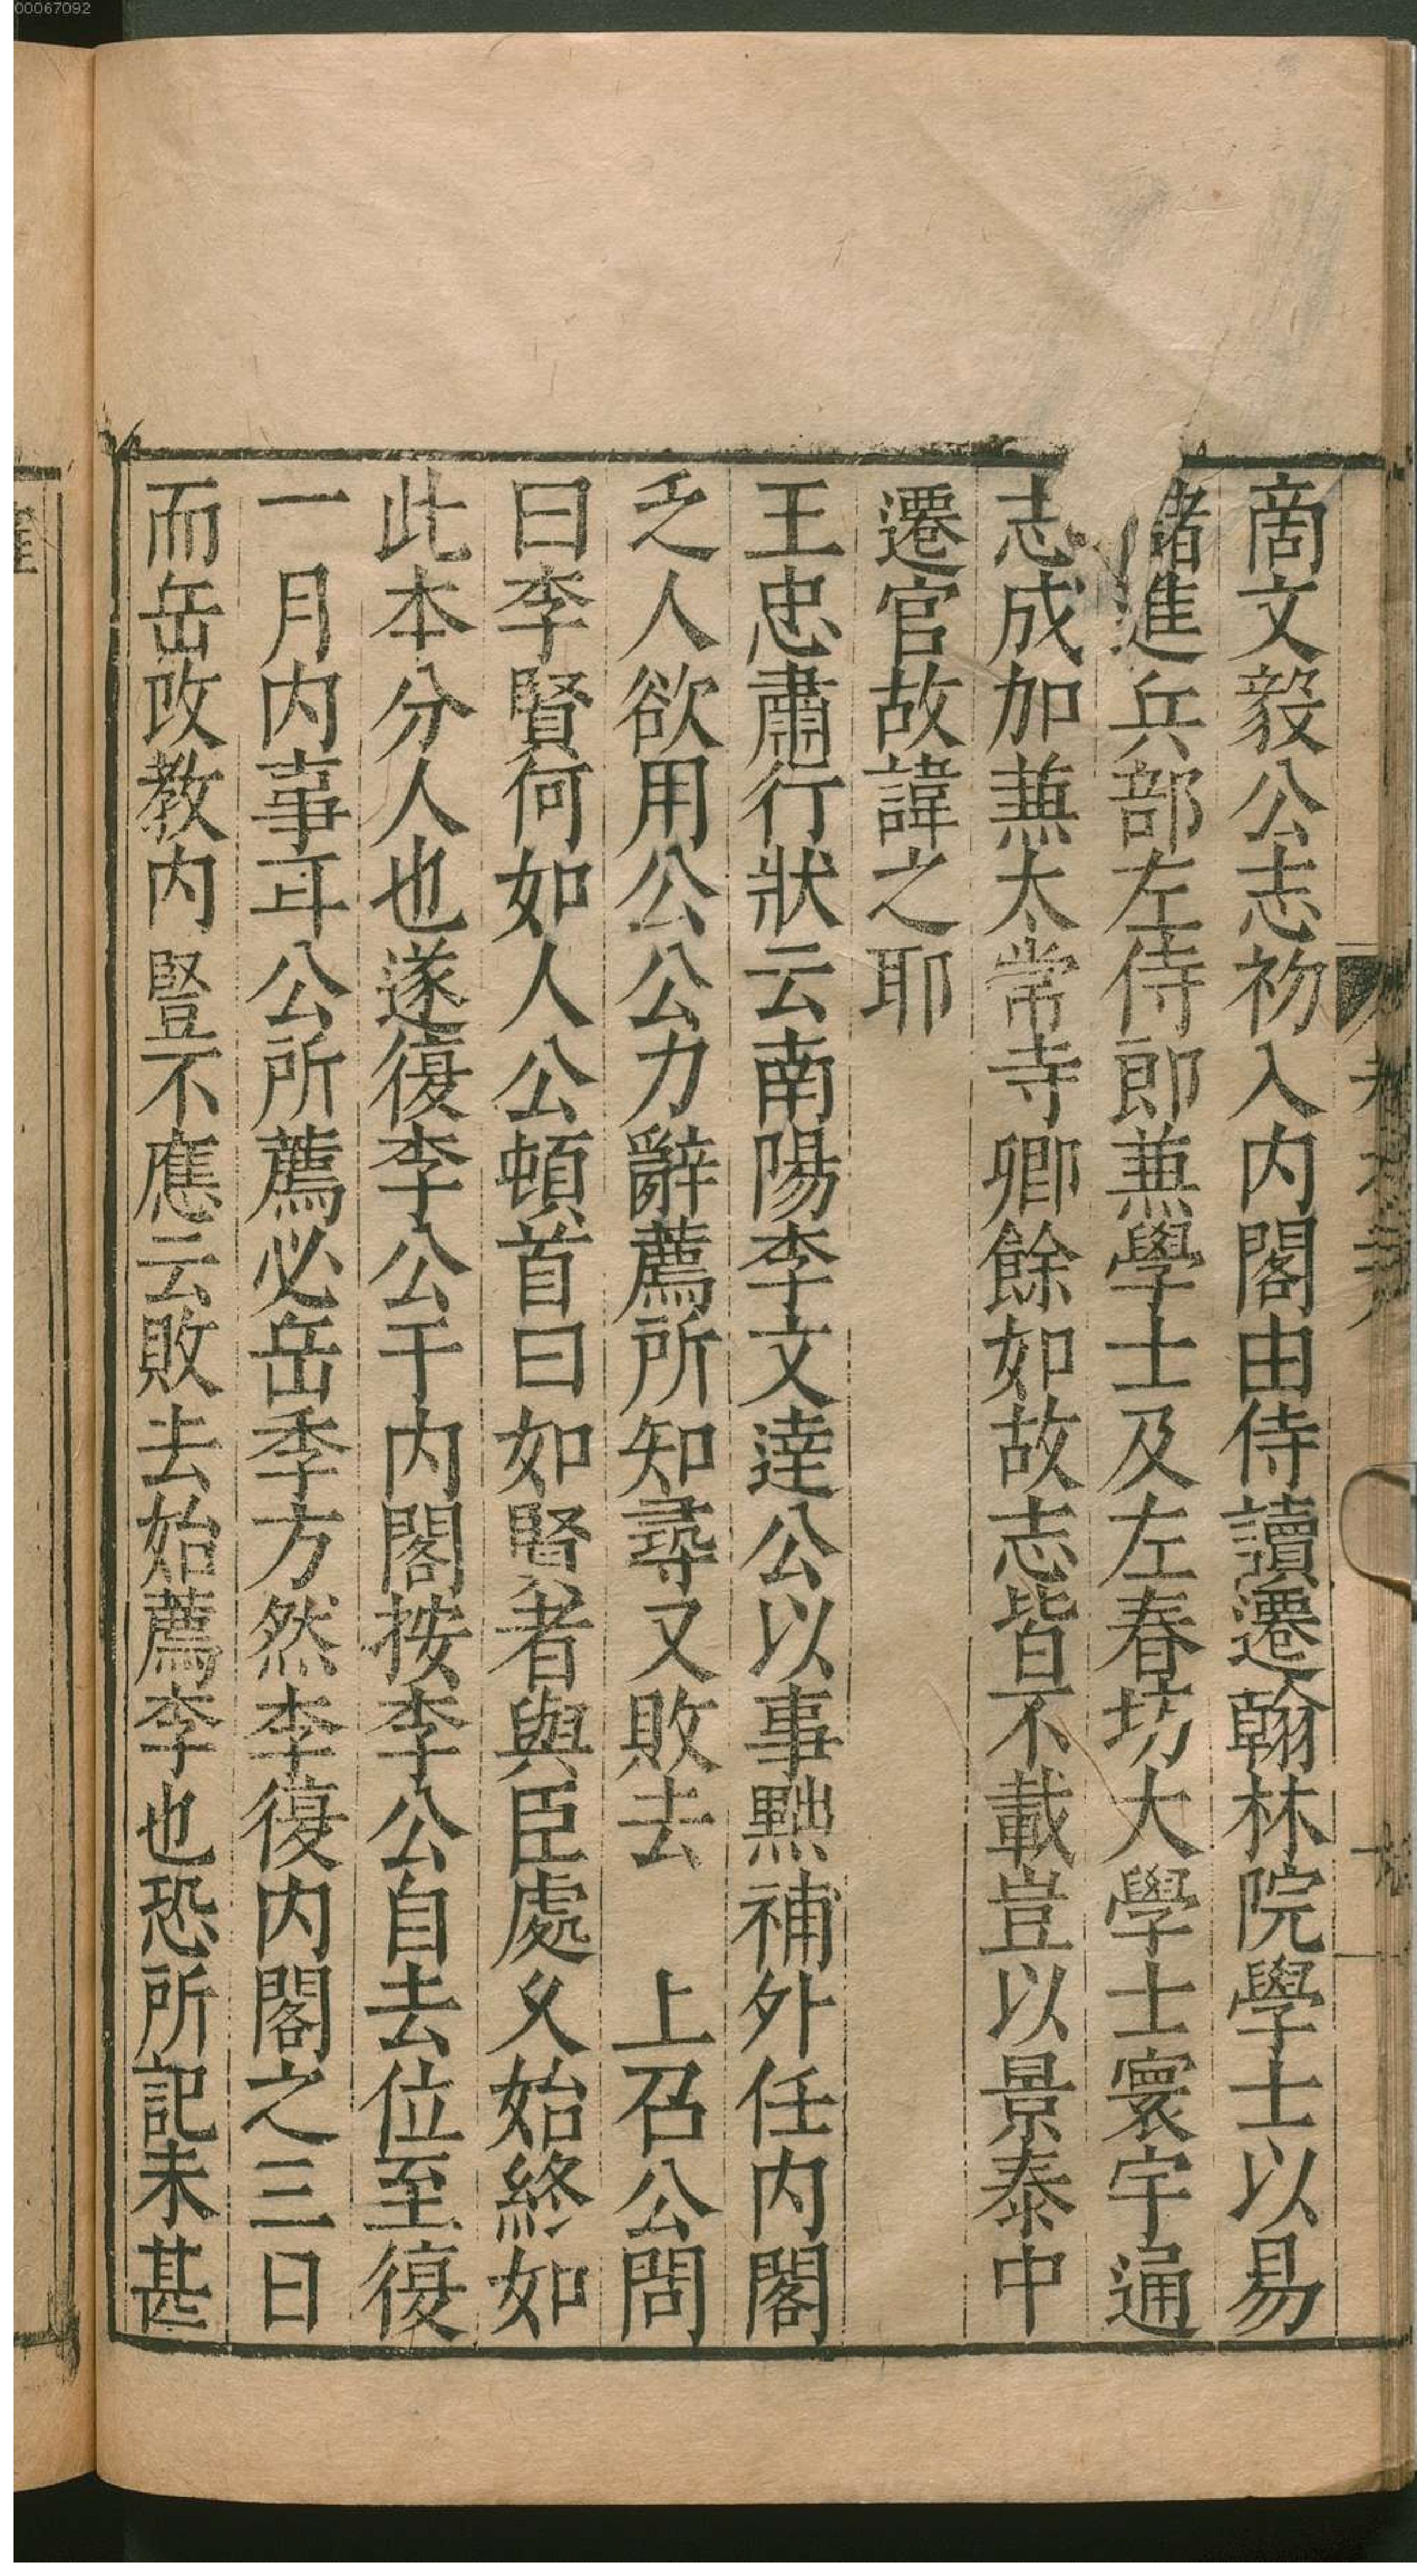 商文毅公志初入内閣由侍讀遷翰林院學士以易
儲進兵部左侍郎兼學士及左春坊大學士寰宇通
志成加兼太常寺卿餘如故志皆不載豈以景泰中
遷官故諱之耶
王忠肅行狀云南陽李文達公以事黜補外任内閣
乏人欲用公公力辭薦所知尋又敗去　上召公問
曰李賢何如人公頓首曰如賢者與臣處久始終如
此本分人也遂復李公于内閣按李公自去位至復
一月内事耳公所薦必岳季方然李復内閣之三日
而岳改教内豎不應云敗去始薦李也恐所記未甚
00067092